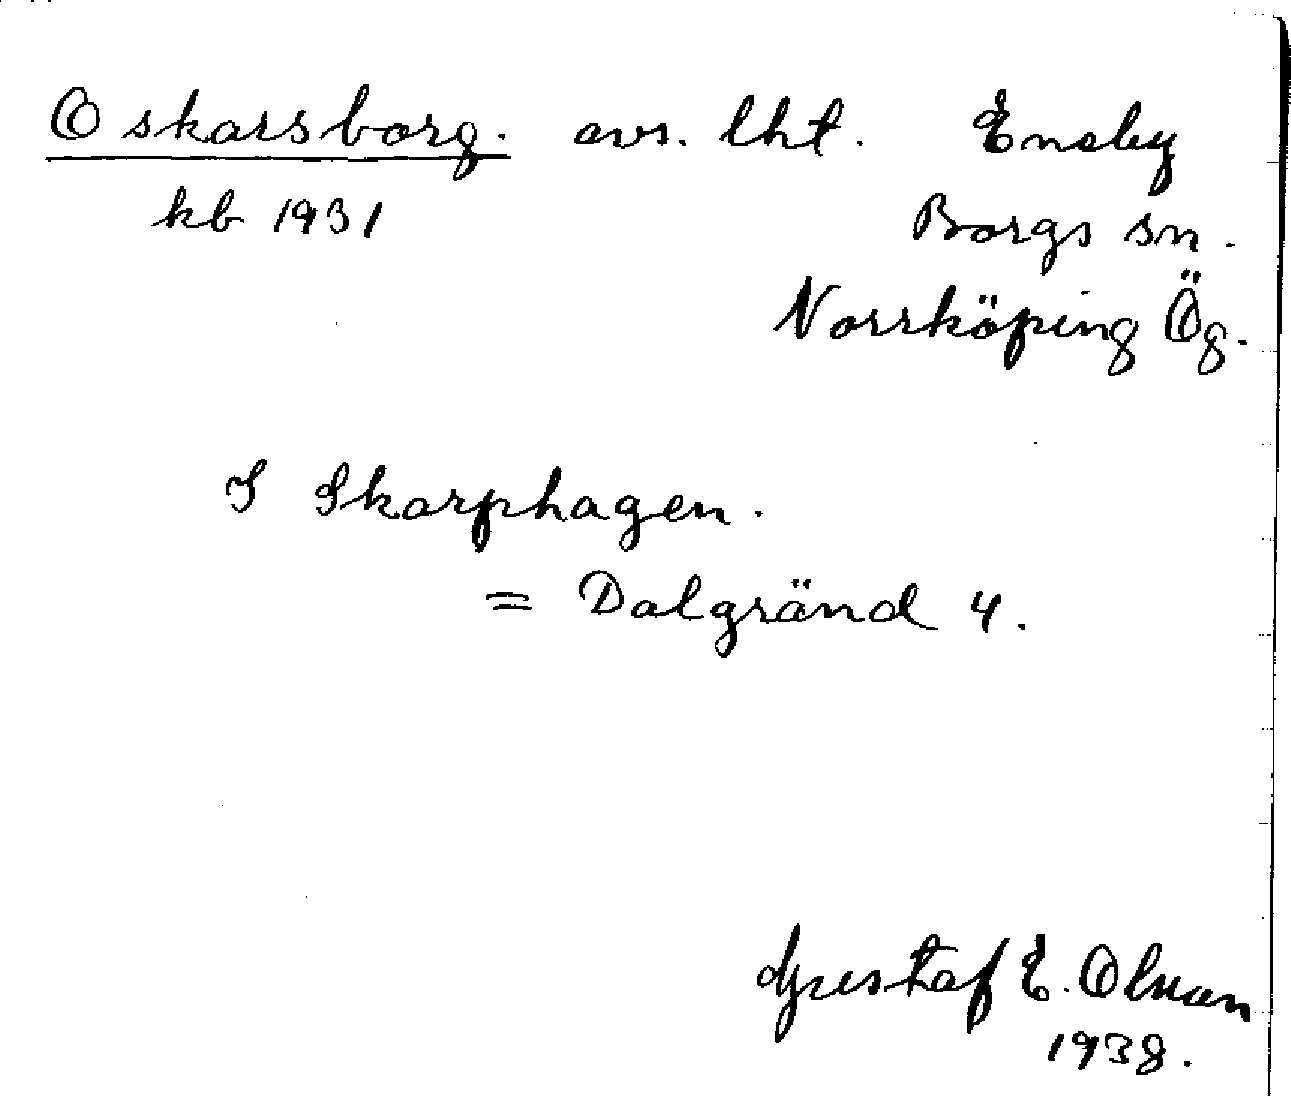 Oskarsborg. avs. lht. Eneby
kb 1931 Borgs sn.
Norrköping Ög.
I Skarphagen.
= Dalgränd 4.
Gustaf E. Olson
1938.